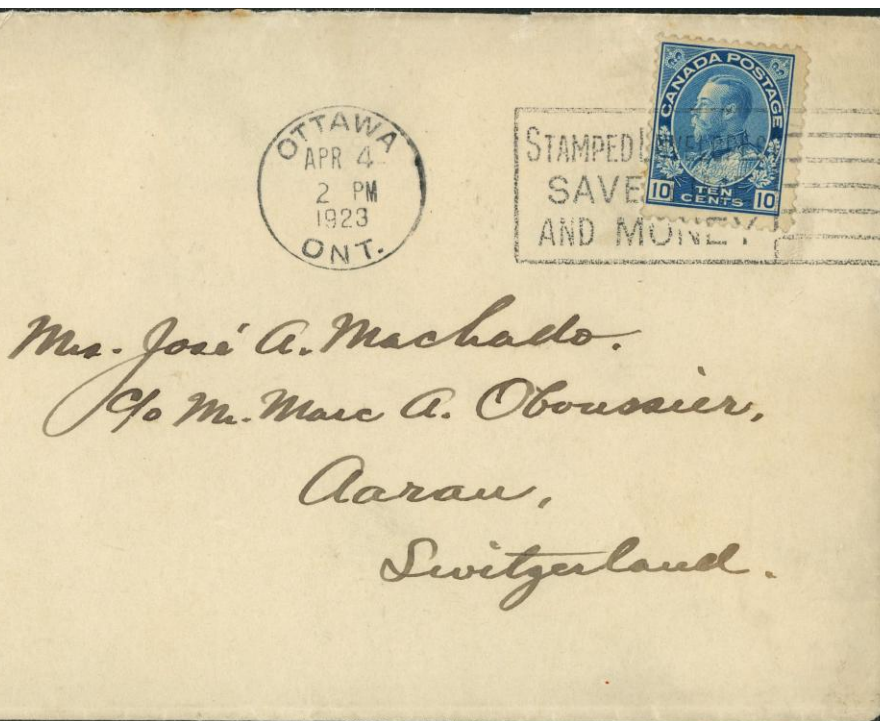 OTTAWA
APR 4
2 PM
1923
ONT.
STAMPED ENVELOPES
SAVE
AND MONEY
CANADA POSTAGE
10 TEN CENTS 10
Mrs. José A. Machado.
c/o Mr. Marc A. Oboussier,
Aarau,
Switzerland.